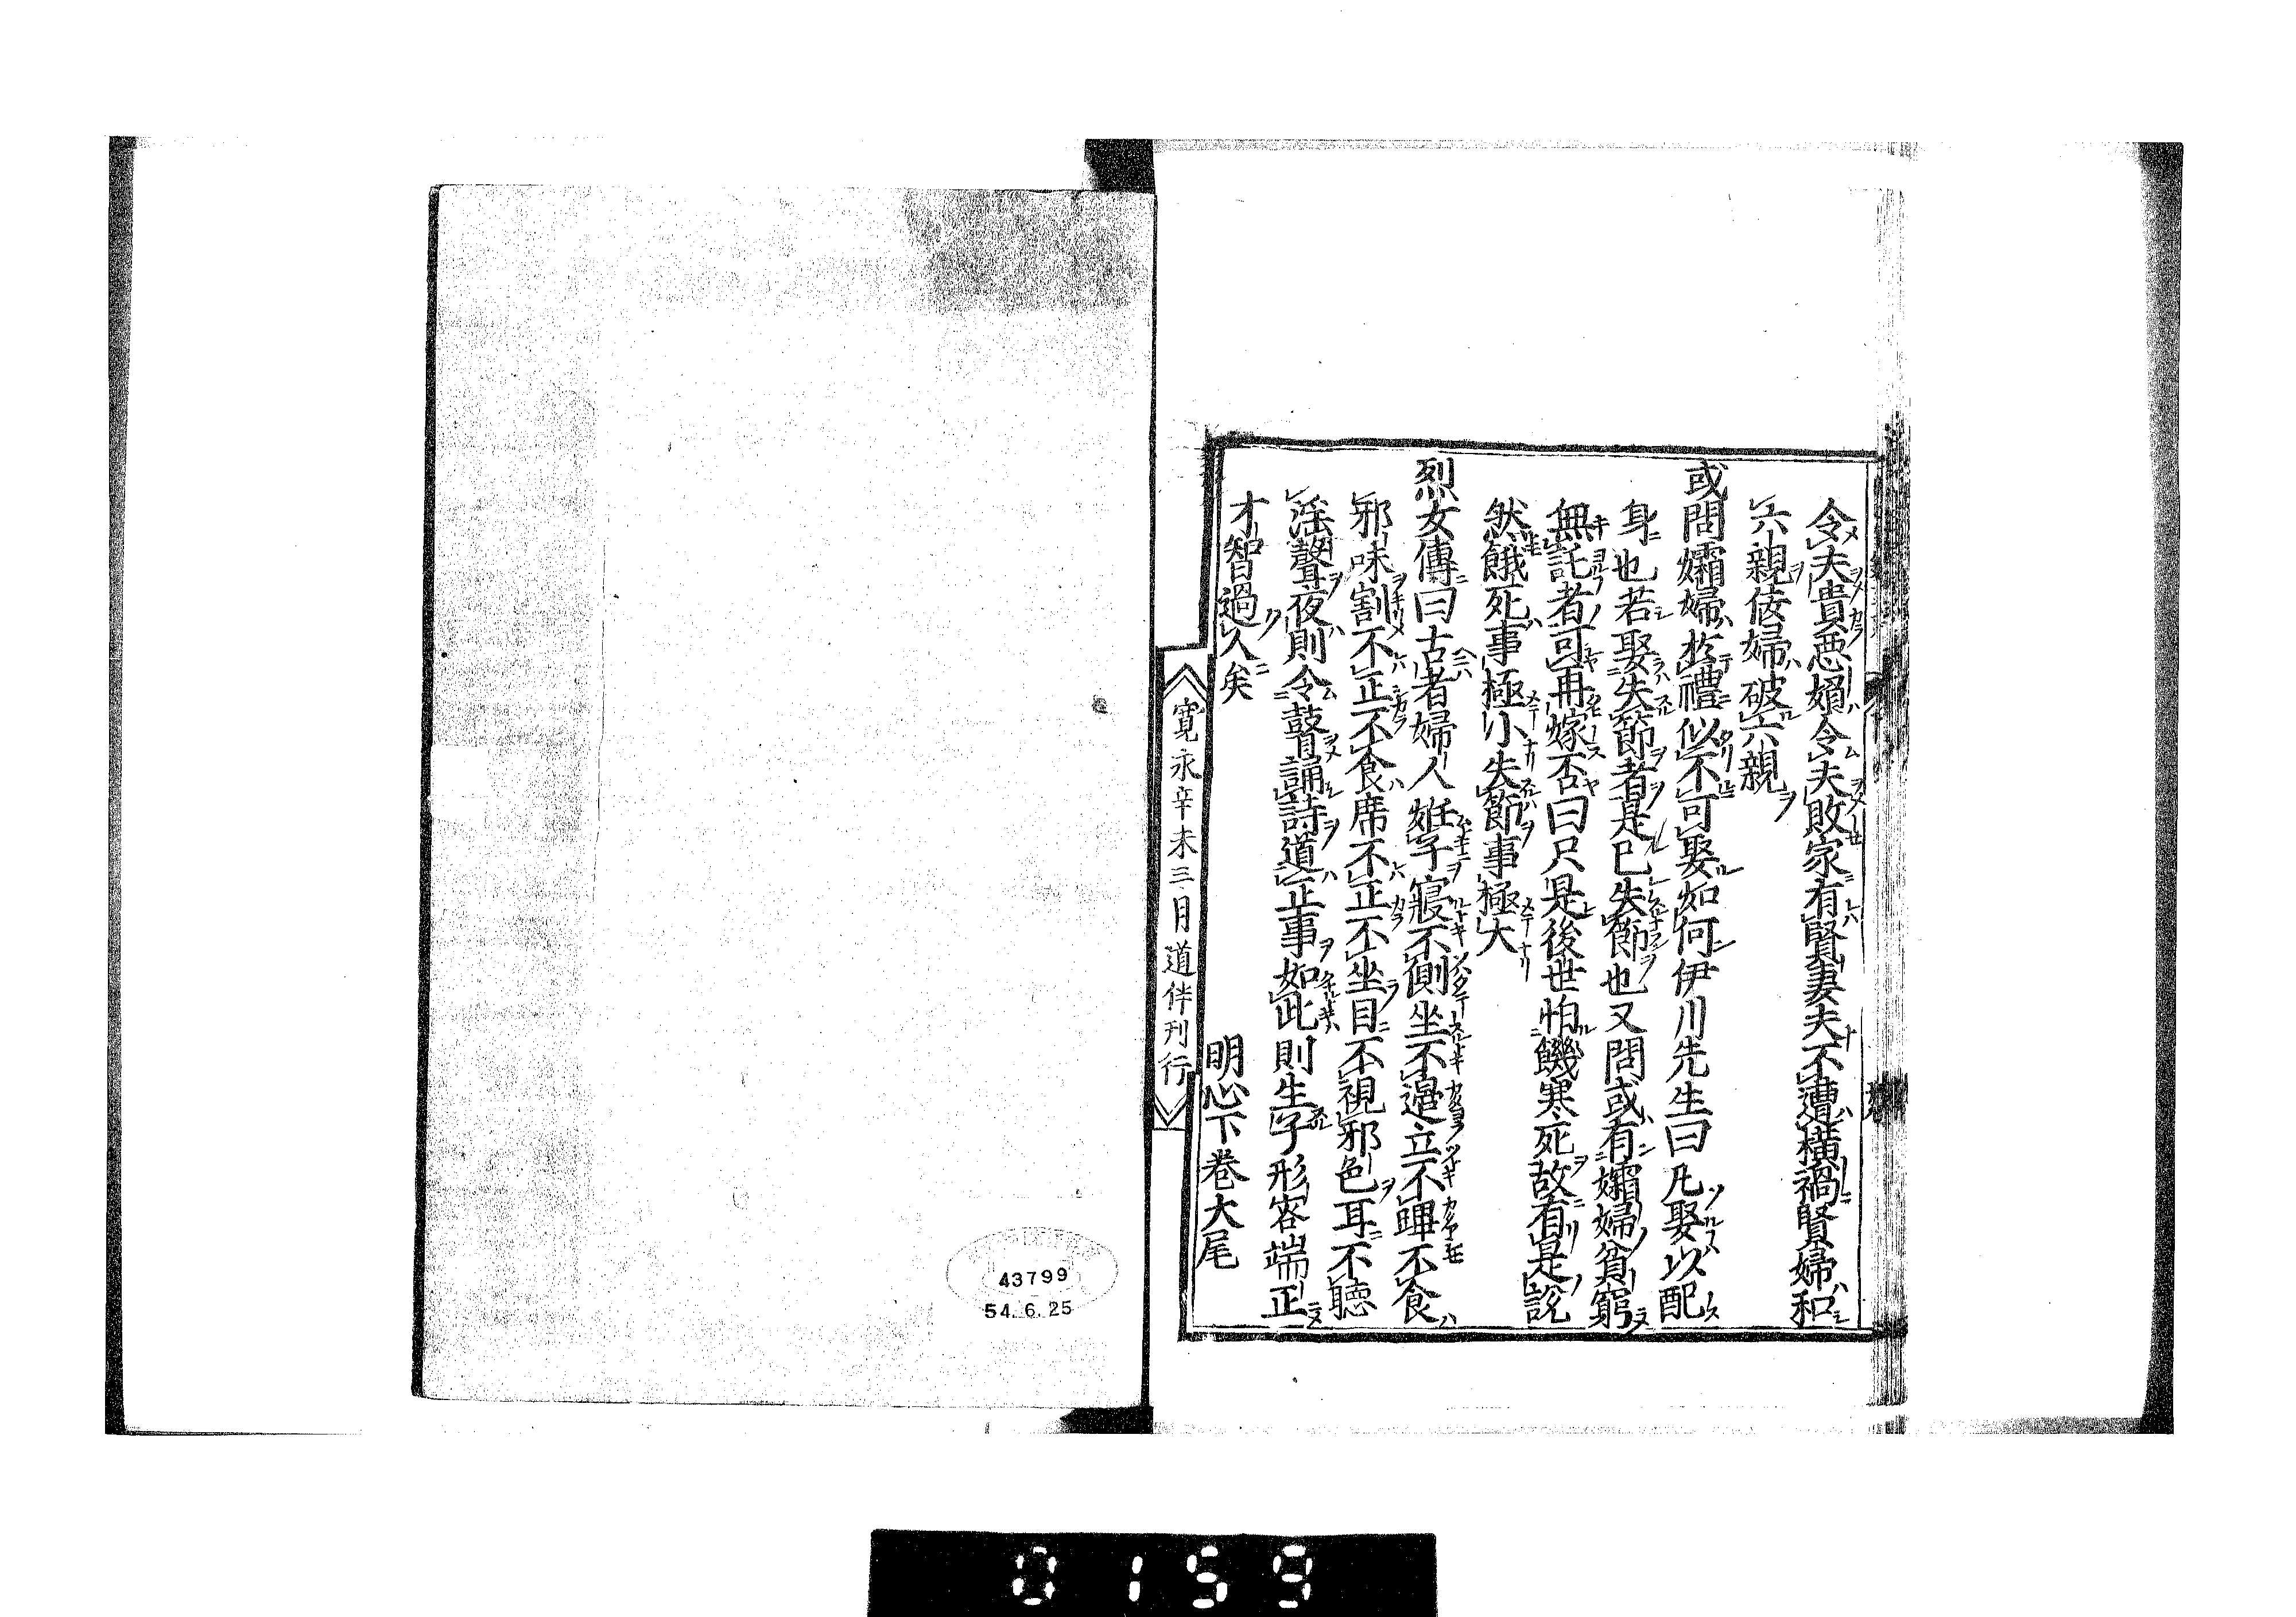 令夫貴惡婦令夫敗家有賢妻夫不遭橫禍賢婦和
六親佞婦破六親
或問孀婦於禮似不可娶如何伊川先生曰凡娶以配
身也若娶失節者是已失節也又問或有孀婦貧窮
無託者可再嫁否曰只是後世怕饑寒死故有是說
然餓死事極小失節事極大
烈女傳曰古者婦人姙子寢不側坐不邊立不蹕不食
邪味割不正不食席不正不坐目不視邪色耳不聽
淫聲夜則令瞽誦詩道正事如此則生子形容端正
才智過人矣
明心下卷大尾
寛永辛未三月道伴刊行
43799
54.6.25
0159